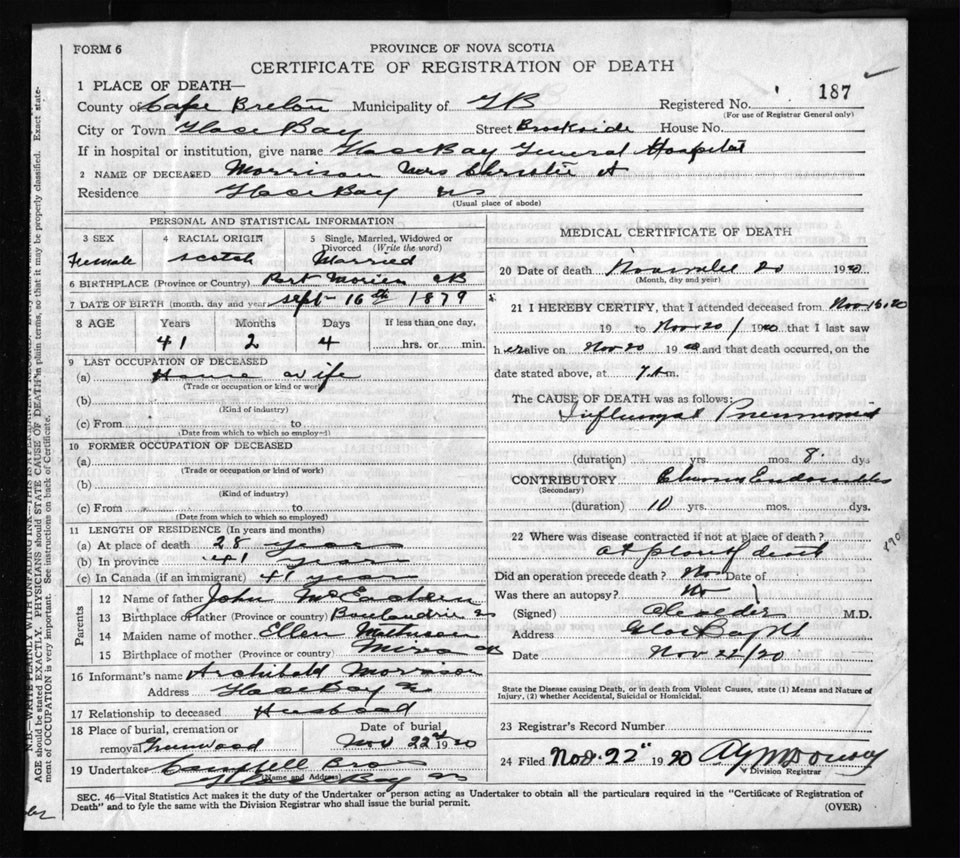 FORM 6
PROVINCE OF NOVA SCOTIA
CERTIFICATE OF REGISTRATION OF DEATH
1 PLACE OF DEATH—
County of Cape Breton Municipality of GB Registered No. 187
(For use of Registrar General only)
City or Town Glace Bay Street Brookside House No.
If in hospital or institution, give name Glace Bay General Hospital
2 NAME OF DECEASED Morrison Mrs Christie A
Residence Glace Bay NS
(Usual place of abode)
PERSONAL AND STATISTICAL INFORMATION
3 SEX 4 RACIAL ORIGIN 5 Single, Married, Widowed or
Divorced (Write the word)
Female Scotch Married
6 BIRTHPLACE (Province or Country) Port Morien CB
7 DATE OF BIRTH (month, day and year) Sept 16th 1879
8 AGE Years Months Days If less than one day,
41 2 4 hrs. or min.
9 LAST OCCUPATION OF DECEASED
(a) House wife
(Trade or occupation or kind or work)
(b)
(Kind of industry)
(c) From to
(Date from which to which so employed)
10 FORMER OCCUPATION OF DECEASED
(a)
(Trade or occupation or kind of work)
(b)
(Kind of industry)
(c) From to
(Date from which to which so employed)
11 LENGTH OF RESIDENCE (In years and months)
(a) At place of death 28 years
(b) In province 41 years
(c) In Canada (if an immigrant) 41 years
Parents
12 Name of father John McEachern
13 Birthplace of father (Province or country) Boularderie
14 Maiden name of mother Ellen Matheson
15 Birthplace of mother (Province or country) Mira
16 Informant's name Archibald Morrison
Address Glace Bay
17 Relationship to deceased Husband
18 Place of burial, cremation or Date of burial
removal Greenwood Nov 22nd 1920
19 Undertaker Campbell Bros
(Name and Address)
Glace Bay
MEDICAL CERTIFICATE OF DEATH
20 Date of death November 20 1920
(Month, day and year)
21 I HEREBY CERTIFY, that I attended deceased from Nov 15.20
19 to Nov 20 / 1920 that I last saw
her alive on Nov 20 1920 and that death occurred, on the
date stated above, at 7 A m.
The CAUSE OF DEATH was as follows:
Influenzal Pneumonia
(duration) yrs. mos. 8. dys
CONTRIBUTORY
(Secondary)
(duration) 10 yrs. mos. dys.
22 Where was disease contracted if not at place of death?
at place of death
Did an operation precede death? No Date of
Was there an autopsy? No
(Signed) M.D.
Address Glace Bay NS
Date Nov 22/20
State the Disease causing Death, or in death from Violent Causes, state (1) Means and Nature of
Injury, (2) whether Accidental, Suicidal or Homicidal.
23 Registrar's Record Number
24 Filed Nov. 22" 1920
Division Registrar
SEC. 46—Vital Statistics Act makes it the duty of the Undertaker or person acting as Undertaker to obtain all the particulars required in the "Certificate of Registration of
Death" and to fyle the same with the Division Registrar who shall issue the burial permit. (OVER)
N.B.—WRITE PLAINLY WITH UNFADING INK—THIS IS
AGE should be stated EXACTLY. PHYSICIANS should STATE CAUSE OF DEATH in plain terms, so that it may be properly classified. Exact state-
ment of OCCUPATION is very important. See instructions on back of Certificate.